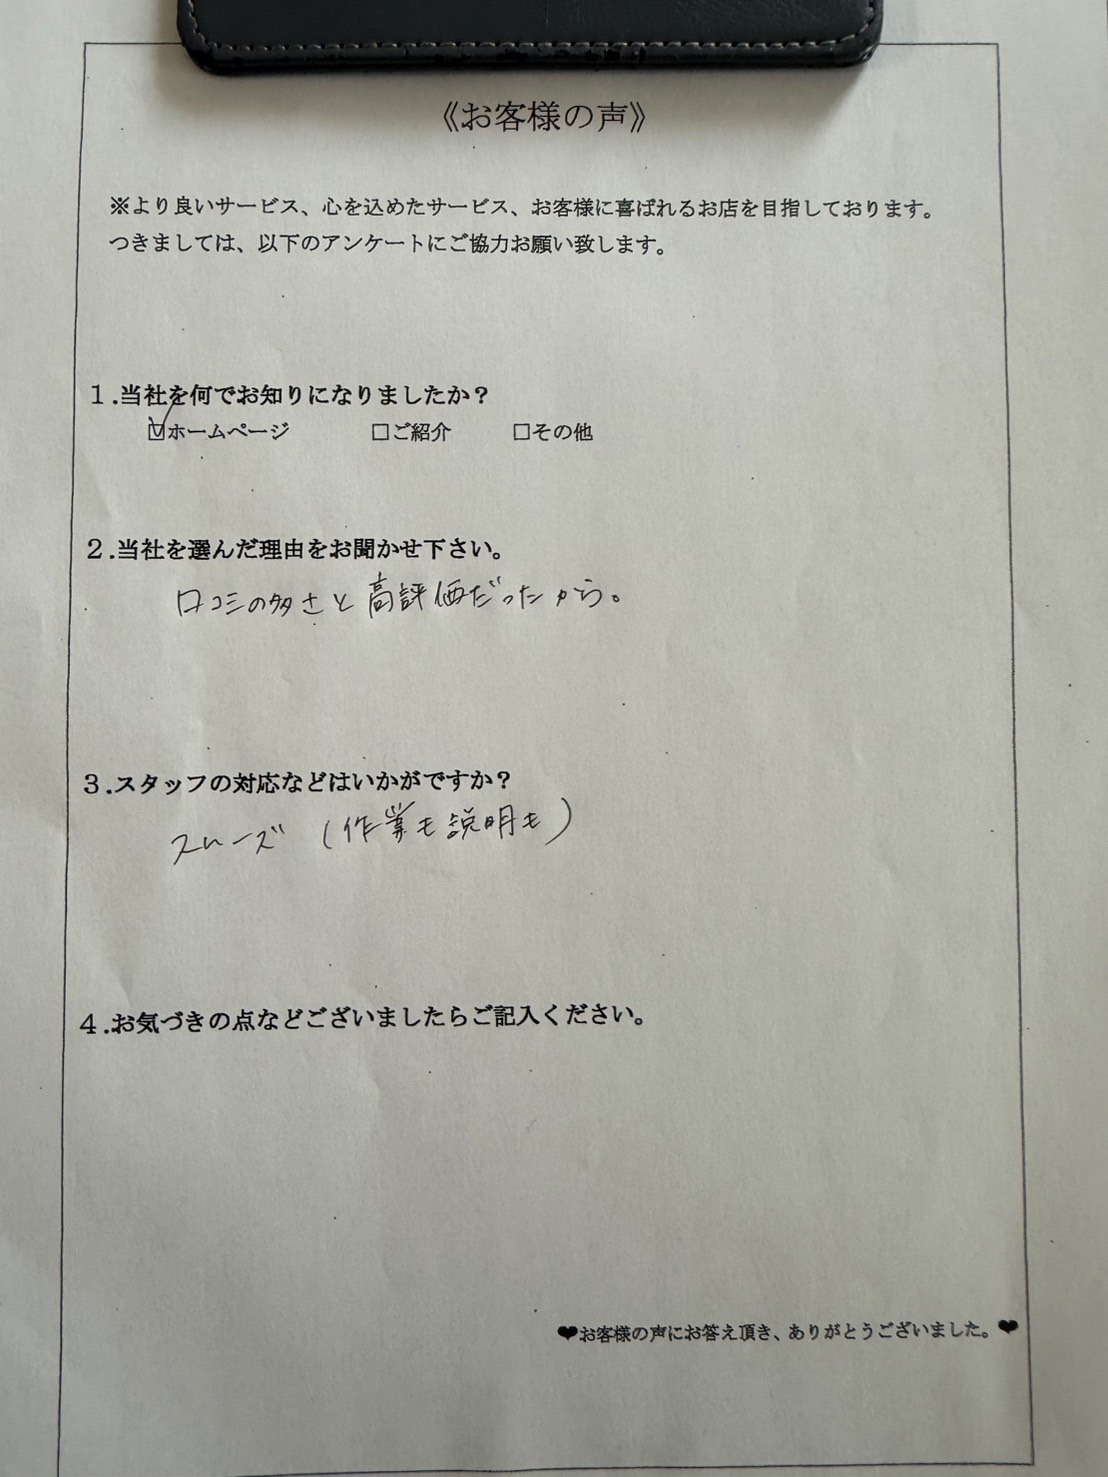 《お客様の声》
※より良いサービス、心を込めたサービス、お客様に喜ばれるお店を目指しております。
つきましては、以下のアンケートにご協力お願い致します。
１.当社を何でお知りになりましたか？
☑ホームページ □ご紹介 □その他
２.当社を選んだ理由をお聞かせ下さい。
口コミの多さと高評価だったから。
３.スタッフの対応などはいかがですか？
スムーズ（作業も説明も）
４.お気づきの点などございましたらご記入ください。
❤お客様の声にお答え頂き、ありがとうございました。❤